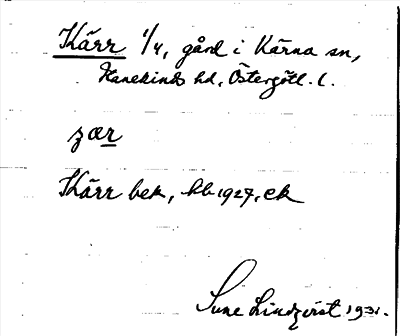 Kärr 1/4, gård i Kärna sn,
Hanekinds hd, Östergötl. l.
ɟær
Kärr bek, hb 1927, ek
Sune Lindqvist 1931.